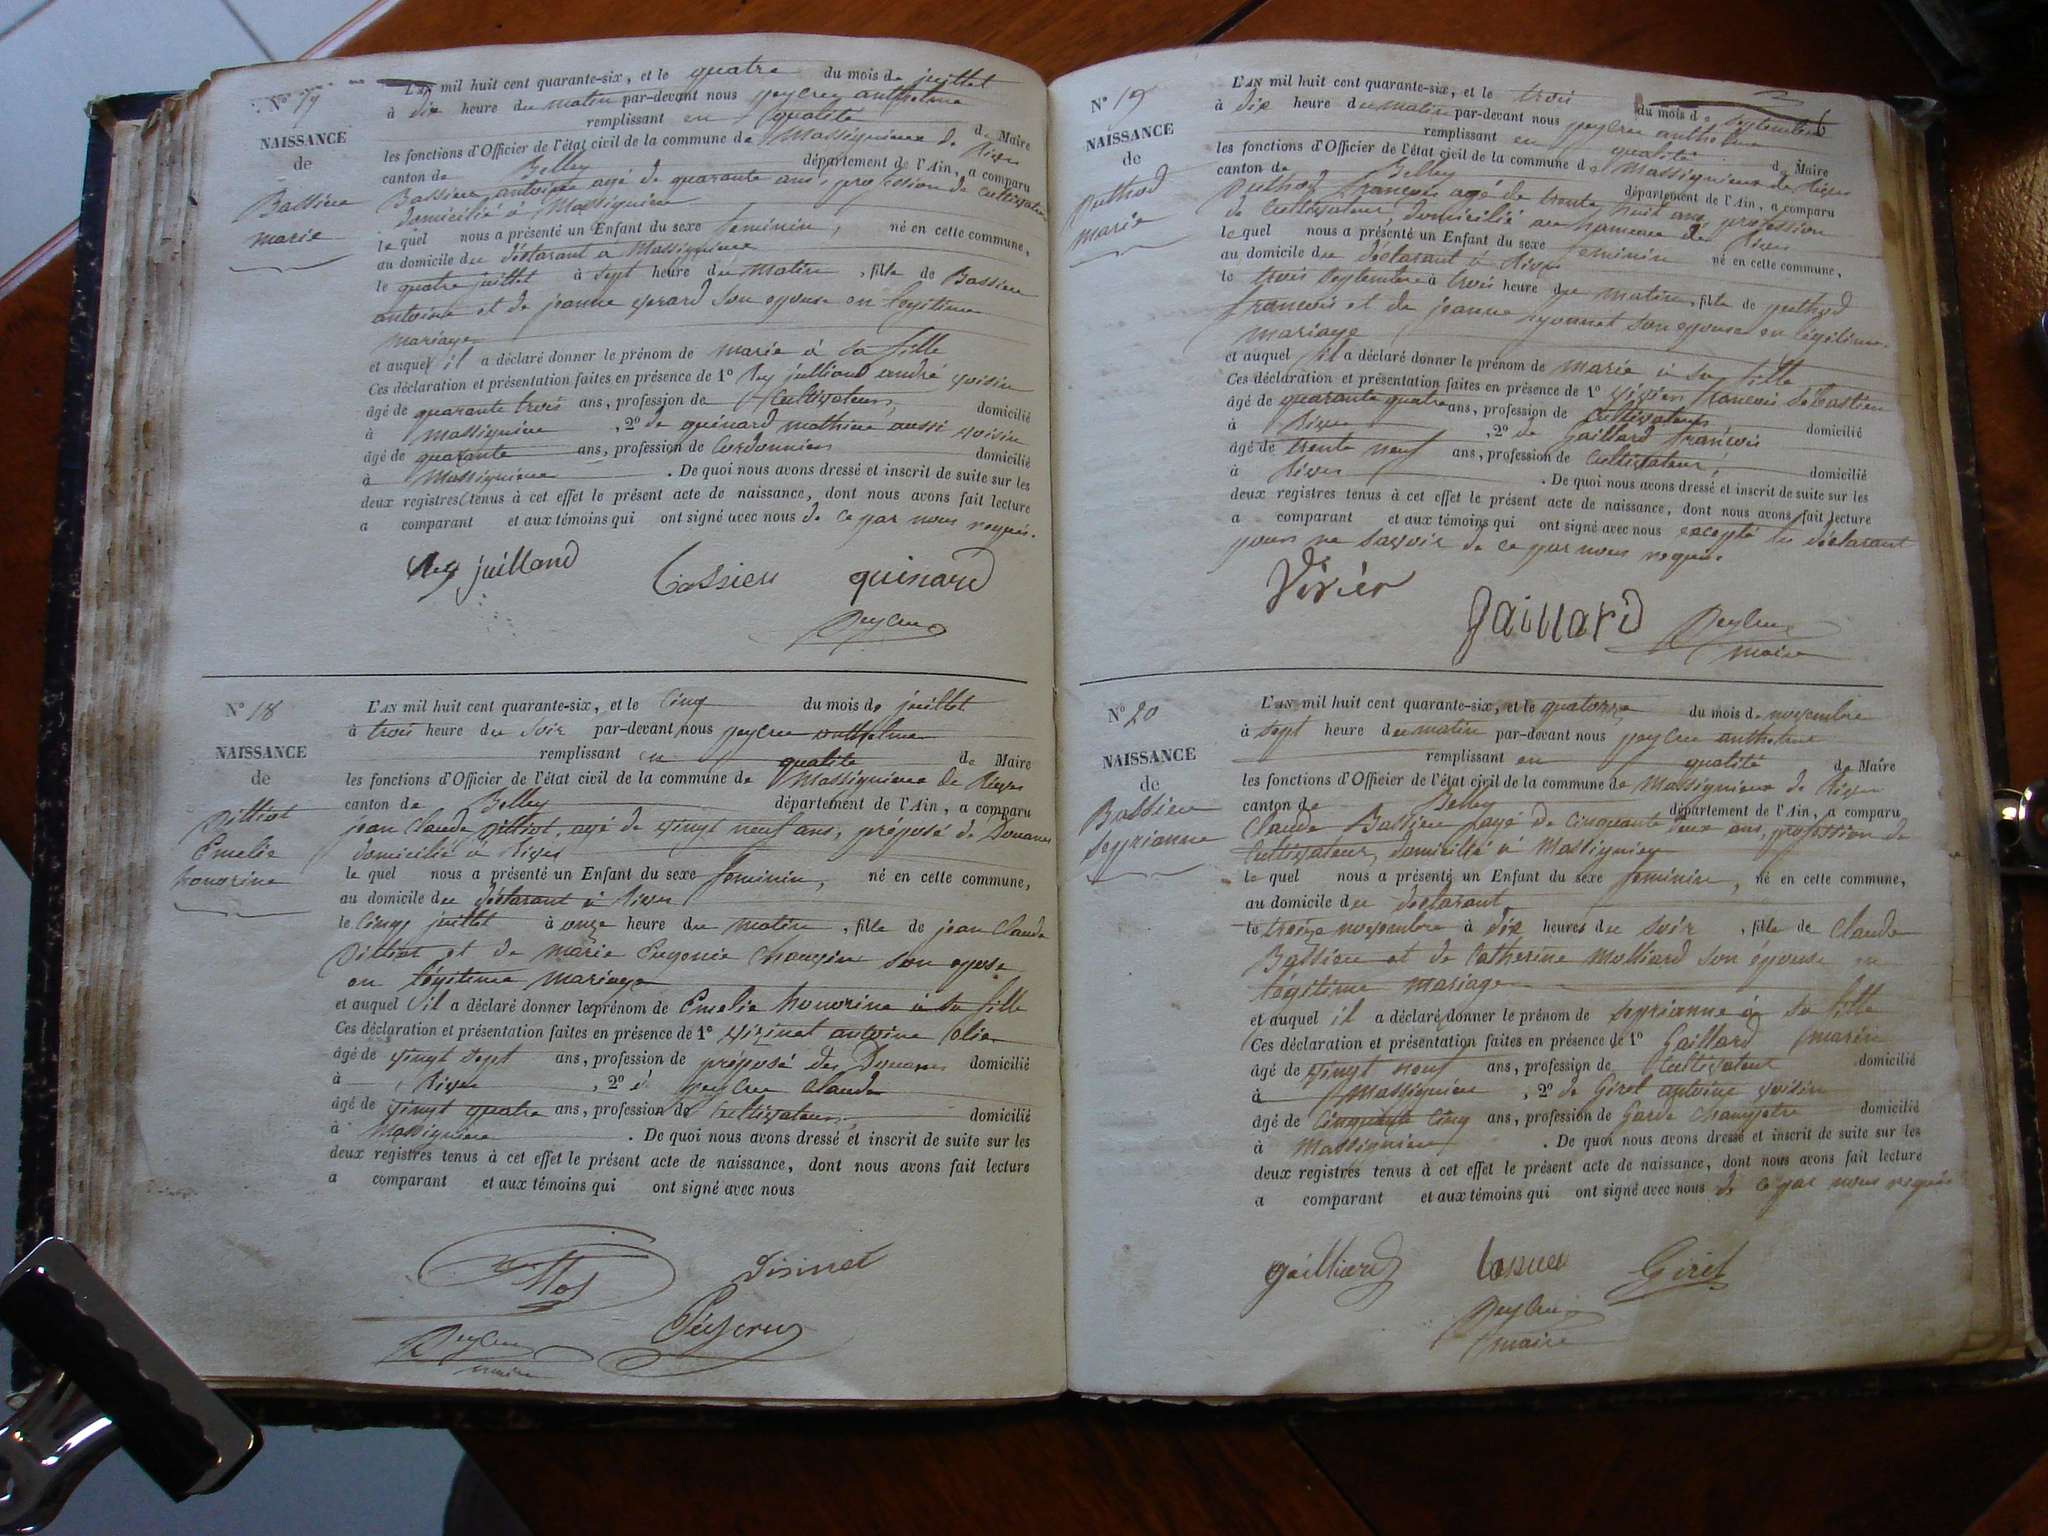 N° 17
NAISSANCE
de
Bassieu
marie
L'AN mil huit cent quarante-six, et le quatre du mois de juillet
à dix heure du matin par-devant nous peycru anthelme
remplissant en qualité de Maire
les fonctions d'Officier de l'état civil de la commune de Massignieu de Rives
canton de Belley département de l'Ain, a comparu
Bassieu antoine agé de quarante ans, profession de Cultivateur
domicilié à Massignieu
le quel nous a présenté un Enfant du sexe feminin, né en cette commune,
au domicile du déclarant à Massignieu
le quatre juillet à sept heure du matin, fille de Bassieu
antoine et de jeanne son epouse en legitime
mariage
et auquel il a déclaré donner le prénom de marie à sa fille
Ces déclaration et présentation faites en présence de 1° Rey juilland andré voisin
âgé de quarante trois ans, profession de Cultivateur, domicilié
à massignieu, 2° de quinard mathieu aussi voisin
âgé de quarante ans, profession de Cordonnier domicilié
à Massignieu. De quoi nous avons dressé et inscrit de suite sur les
deux registres tenus à cet effet le présent acte de naissance, dont nous avons fait lecture
a comparant et aux témoins qui ont signé avec nous de ce par nous requis.
Rey juilland Bassieu quinard
Peycru
N° 18
NAISSANCE
de
Pilliot
Emelie
honorine
L'AN mil huit cent quarante-six, et le cinq du mois de juillet
à trois heure du soir par-devant nous peycru anthelme
remplissant en qualité de Maire
les fonctions d'Officier de l'état civil de la commune de Massignieu de Rives
canton de Belley département de l'Ain, a comparu
jean Claude Pilliot, agé de vingt neuf ans, préposé de Douanes
domicilié à Rives
le quel nous a présenté un Enfant du sexe feminin, né en cette commune,
au domicile du déclarant à Rives
le cinq juillet à onze heure du matin, fille de jean Claude
Pilliot et de marie Eugenie son epouse
en légitime mariage
et auquel il a déclaré donner le prénom de Emelie honorine à sa fille
Ces déclaration et présentation faites en présence de 1° antoine
âgé de vingt sept ans, profession de préposé des Douanes domicilié
à Rives, 2° d peycru Claude
âgé de vingt quatre ans, profession de Cultivateur, domicilié
à Massignieu. De quoi nous avons dressé et inscrit de suite sur les
deux registres tenus à cet effet le présent acte de naissance, dont nous avons fait lecture
a comparant et aux témoins qui ont signé avec nous
Peycru
Peycru
maire
N° 19
NAISSANCE
de
Puthod
marie
L'AN mil huit cent quarante-six, et le trois du mois de Septembre
à dix heure du matin par-devant nous peycru anthelme
remplissant en qualité de Maire
les fonctions d'Officier de l'état civil de la commune de Massignieu de Rives
canton de Belley département de l'Ain, a comparu
Puthod françois agé de trente huit ans, profession
de Cultivateur, domicilié au hameau de Rives
le quel nous a présenté un Enfant du sexe feminin né en cette commune,
au domicile du déclarant à Rives
le trois Septembre à trois heure du matin, fille de puthod
francois et de jeanne son epouse en légitime
mariage
et auquel il a déclaré donner le prénom de marie à sa fille
Ces déclaration et présentation faites en présence de 1° françois Sébastien
âgé de quarante quatre ans, profession de Cultivateur domicilié
à Rives, 2° de Gaillard francois
âgé de trente neuf ans, profession de Cultivateur, domicilié
à Rives. De quoi nous avons dressé et inscrit de suite sur les
deux registres tenus à cet effet le présent acte de naissance, dont nous avons fait lecture
a comparant et aux témoins qui ont signé avec nous excepté le déclarant
pour ne savoir de ce par nous requis.
gaillard Peycru
maire
N° 20
NAISSANCE
de
Bassieu
Seyrianne
L'AN mil huit cent quarante-six, et le quatorze du mois de novembre
à sept heure du matin par-devant nous peycru anthelme
remplissant en qualité de Maire
les fonctions d'Officier de l'état civil de la commune de Massignieu de Rives
canton de Belley département de l'Ain, a comparu
Claude Bassieu agé de cinquante deux ans, profession de
Cultivateur, domicilié à Massignieu
le quel nous a présenté un Enfant du sexe feminin, né en cette commune,
au domicile du déclarant,
le treize novembre à dix heures du soir, fille de Claude
Bassieu et de Catherine Molliard son épouse en
légitime mariage
et auquel il a déclaré donner le prénom de seyrianne à sa fille
Ces déclaration et présentation faites en présence de 1° Gaillard marin
âgé de vingt neuf ans, profession de Cultivateur domicilié
à Massignieu, 2° de Girel antoine voisin
âgé de cinquante cinq ans, profession de Garde champetre domicilié
à Massignieu. De quoi nous avons dressé et inscrit de suite sur les
deux registres tenus à cet effet le présent acte de naissance, dont nous avons fait lecture
a comparant et aux témoins qui ont signé avec nous de ce par nous requis
gaillard Girel
Peycru
maire